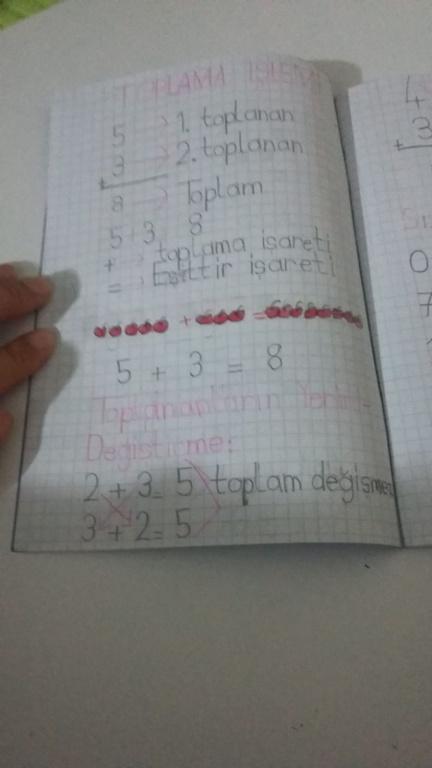 TOPLAMA İŞLEMİ
5 → 1. toplanan
3 → 2. toplanan
+
8 → Toplam
5 + 3 8
+ → toplama işareti
= → Eşittir işareti
+ =
5 + 3 = 8
Toplananların Yerini
Değiştirme:
2 + 3 = 5 toplam değişmez
3 + 2 = 5
4
+ 3
0
7